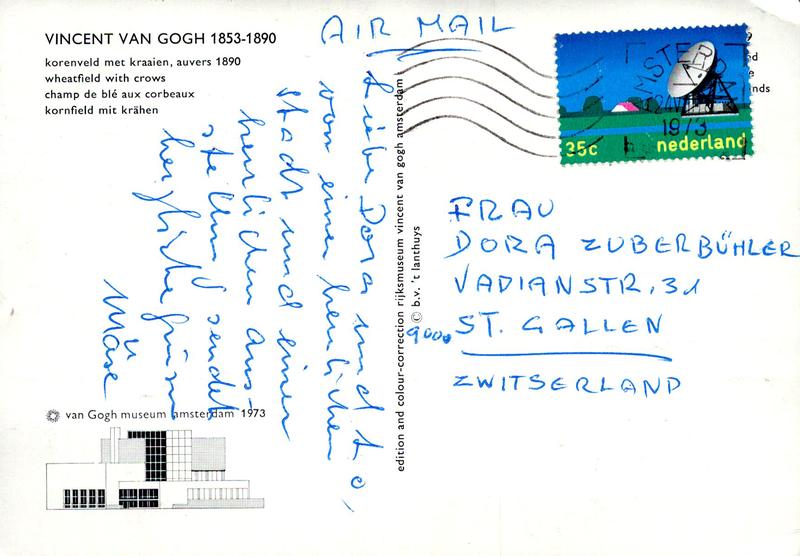 VINCENT VAN GOGH 1853-1890
korenveld met kraaien, auvers 1890
wheatfield with crows
champ de blé aux corbeaux
kornfeld mit krähen
AIR MAIL
Liebe Dora und
von einer herrlichen
Stadt und einer
herrlichen Aus-
stellung sendet
herzliche Grüsse
van Gogh museum amsterdam 1973
edition and colour-correction rijksmuseum vincent van gogh amsterdam
© b.v. 't lanthuys
AMSTERDAM
1973
35c nederland
FRAU
DORA ZUBERBÜHLER
VADIANSTR, 31
9000 ST. GALLEN
ZWITSERLAND